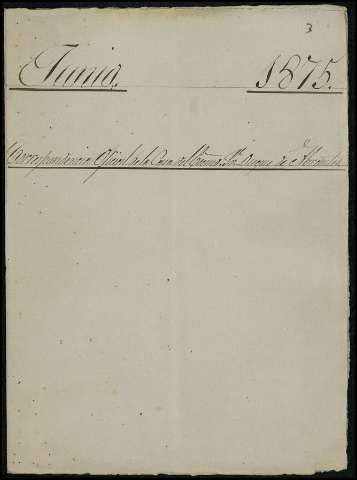 3
Junio. 1875.
Correspondencia Oficial de la Casa del Excmo. Sr. Duque de Abrantes